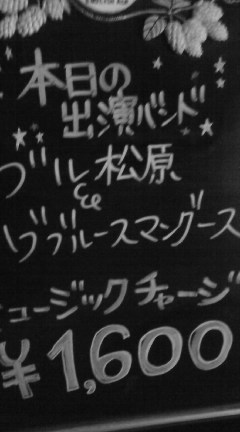 本日の
出演バンド
ブル松原
&
ザブルースマングース
ミュージックチャージ
¥1,600